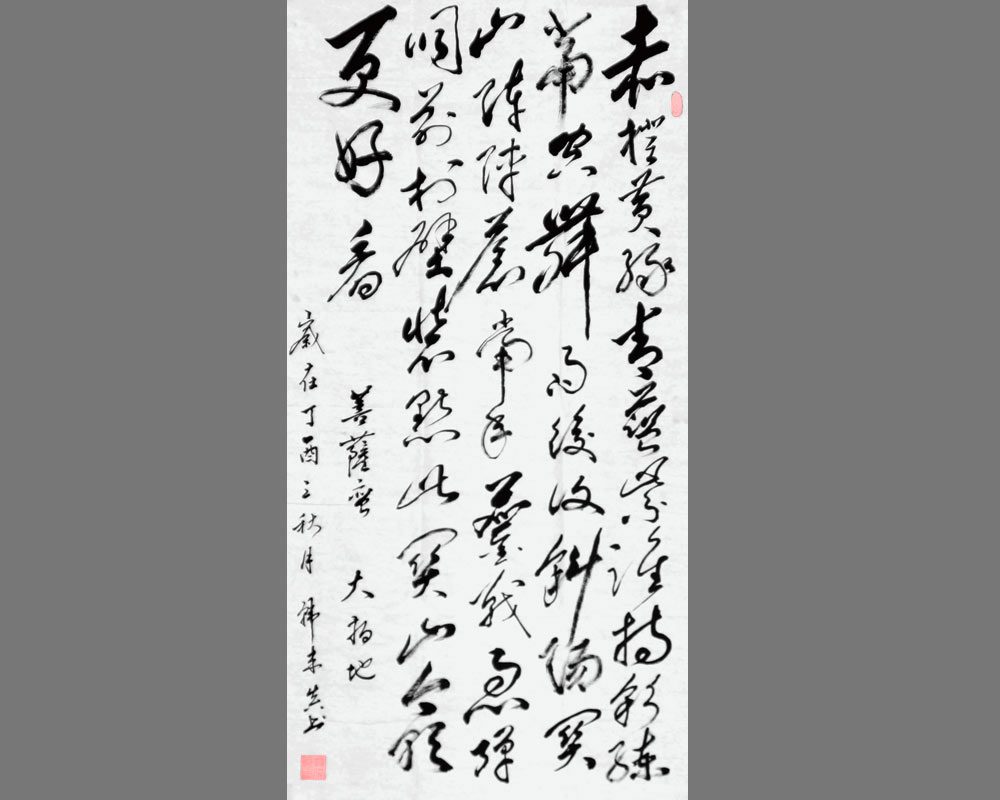 赤橙黃綠青藍紫誰持彩練
當空舞雨後復斜陽關
山陣陣蒼當年鏖戰急彈
洞前村壁裝點此關山今朝
更好看
菩薩蛮 大柏地
歲在丁酉三秋月 書